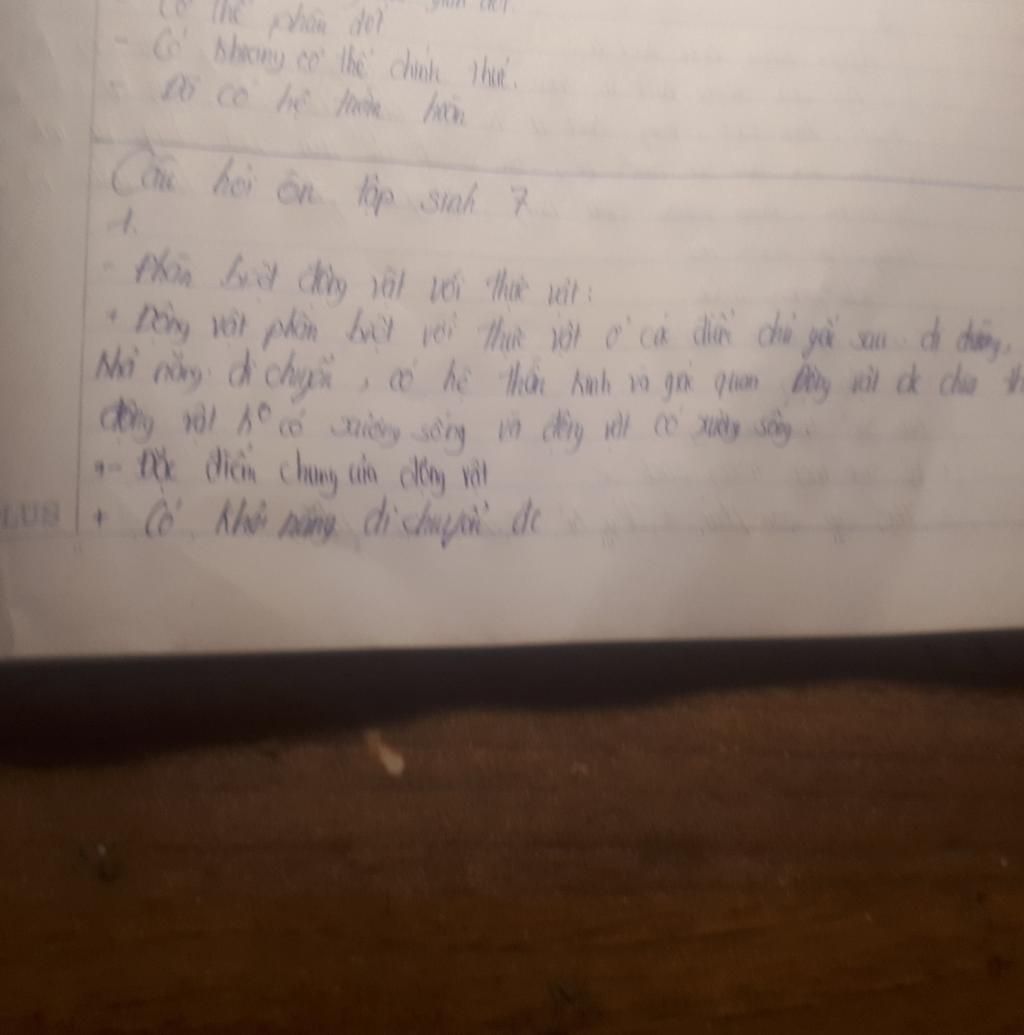 Có thể phân đốt
- Có khoang cơ thể chính thức.
- Đã có hệ tuần hoàn
Câu hỏi ôn tập sinh 7
1.
- Phân biệt động vật với thực vật:
+ Động vật phân biệt với thực vật ở các điểm chủ yếu sau dị dưỡng,
khả năng di chuyển, có hệ thần kinh và giác quan Động vật đc chia
động vật k° có xương sống và động vật có xương sống.
- Đặc điểm chung của động vật
+ Có khả năng di chuyển đc
LUS